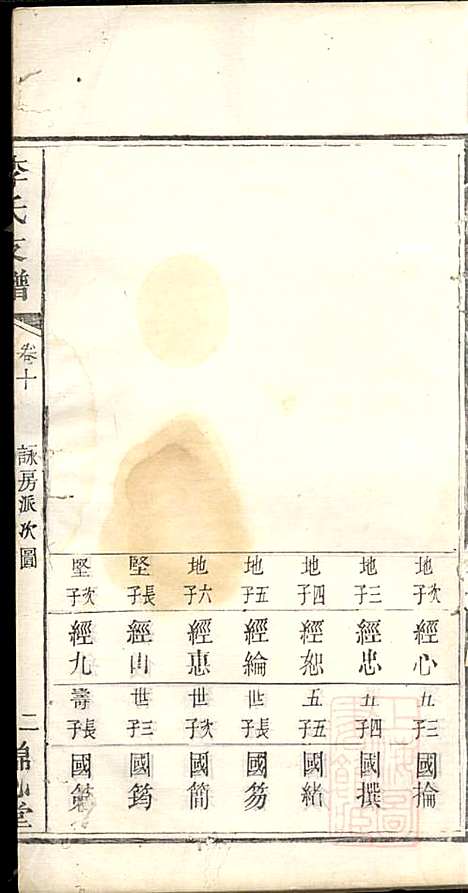 地次子
經心
地三子
經忠
地四子
經恕
地五子
經綸
地六子
經惠
堅長子
經山
堅次子
經九
九三子
國掄
五四子
國撰
五五子
國緒
世長子
國笏
世次子
國簡
世三子
國筠
壽長子
李氏支譜
卷十
詠房派次圖
二